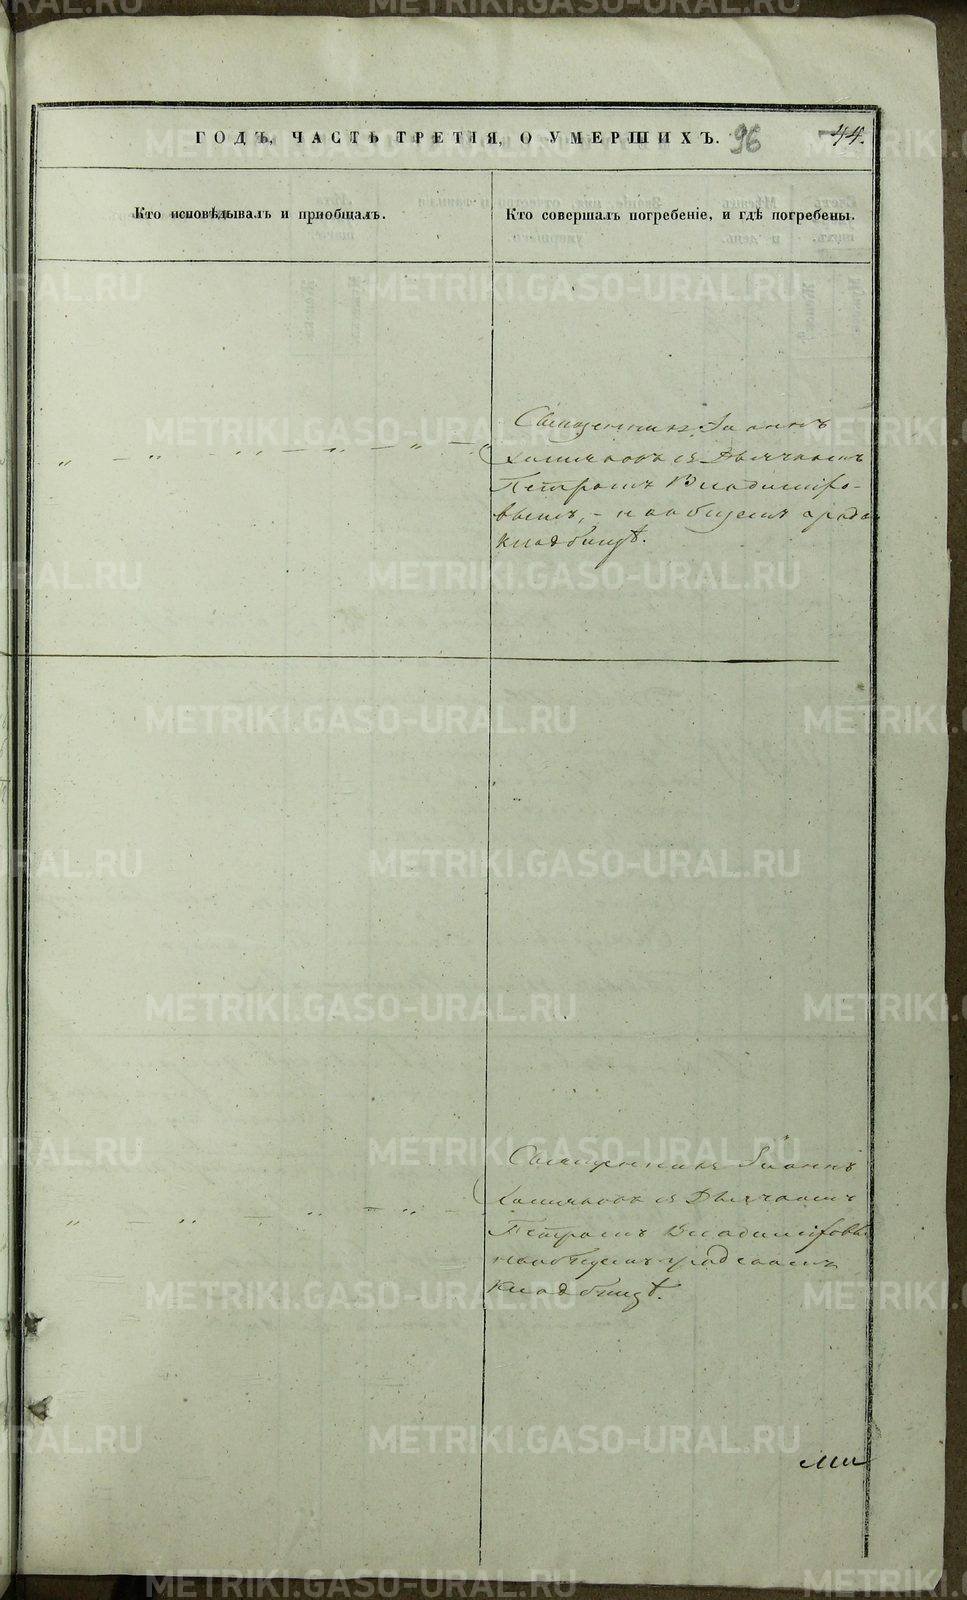 ГОДЪ, ЧАСТЬ ТРЕТІЯ, О УМЕРШИХЪ. 96 44.
Кто исповѣдывалъ и приобщалъ.
Кто совершалъ погребеніе, и гдѣ погребены.
Священникъ Іоаннъ
съ Дьячкомъ
Петромъ Владиміро-
вымъ, - на общемъ градс
кладбищѣ.
Священникъ Іоаннъ
съ Дьячкомъ
Петромъ Владиміровы
на общемъ градскомъ
кладбищѣ.
METRIKI.GASO-URAL.RU